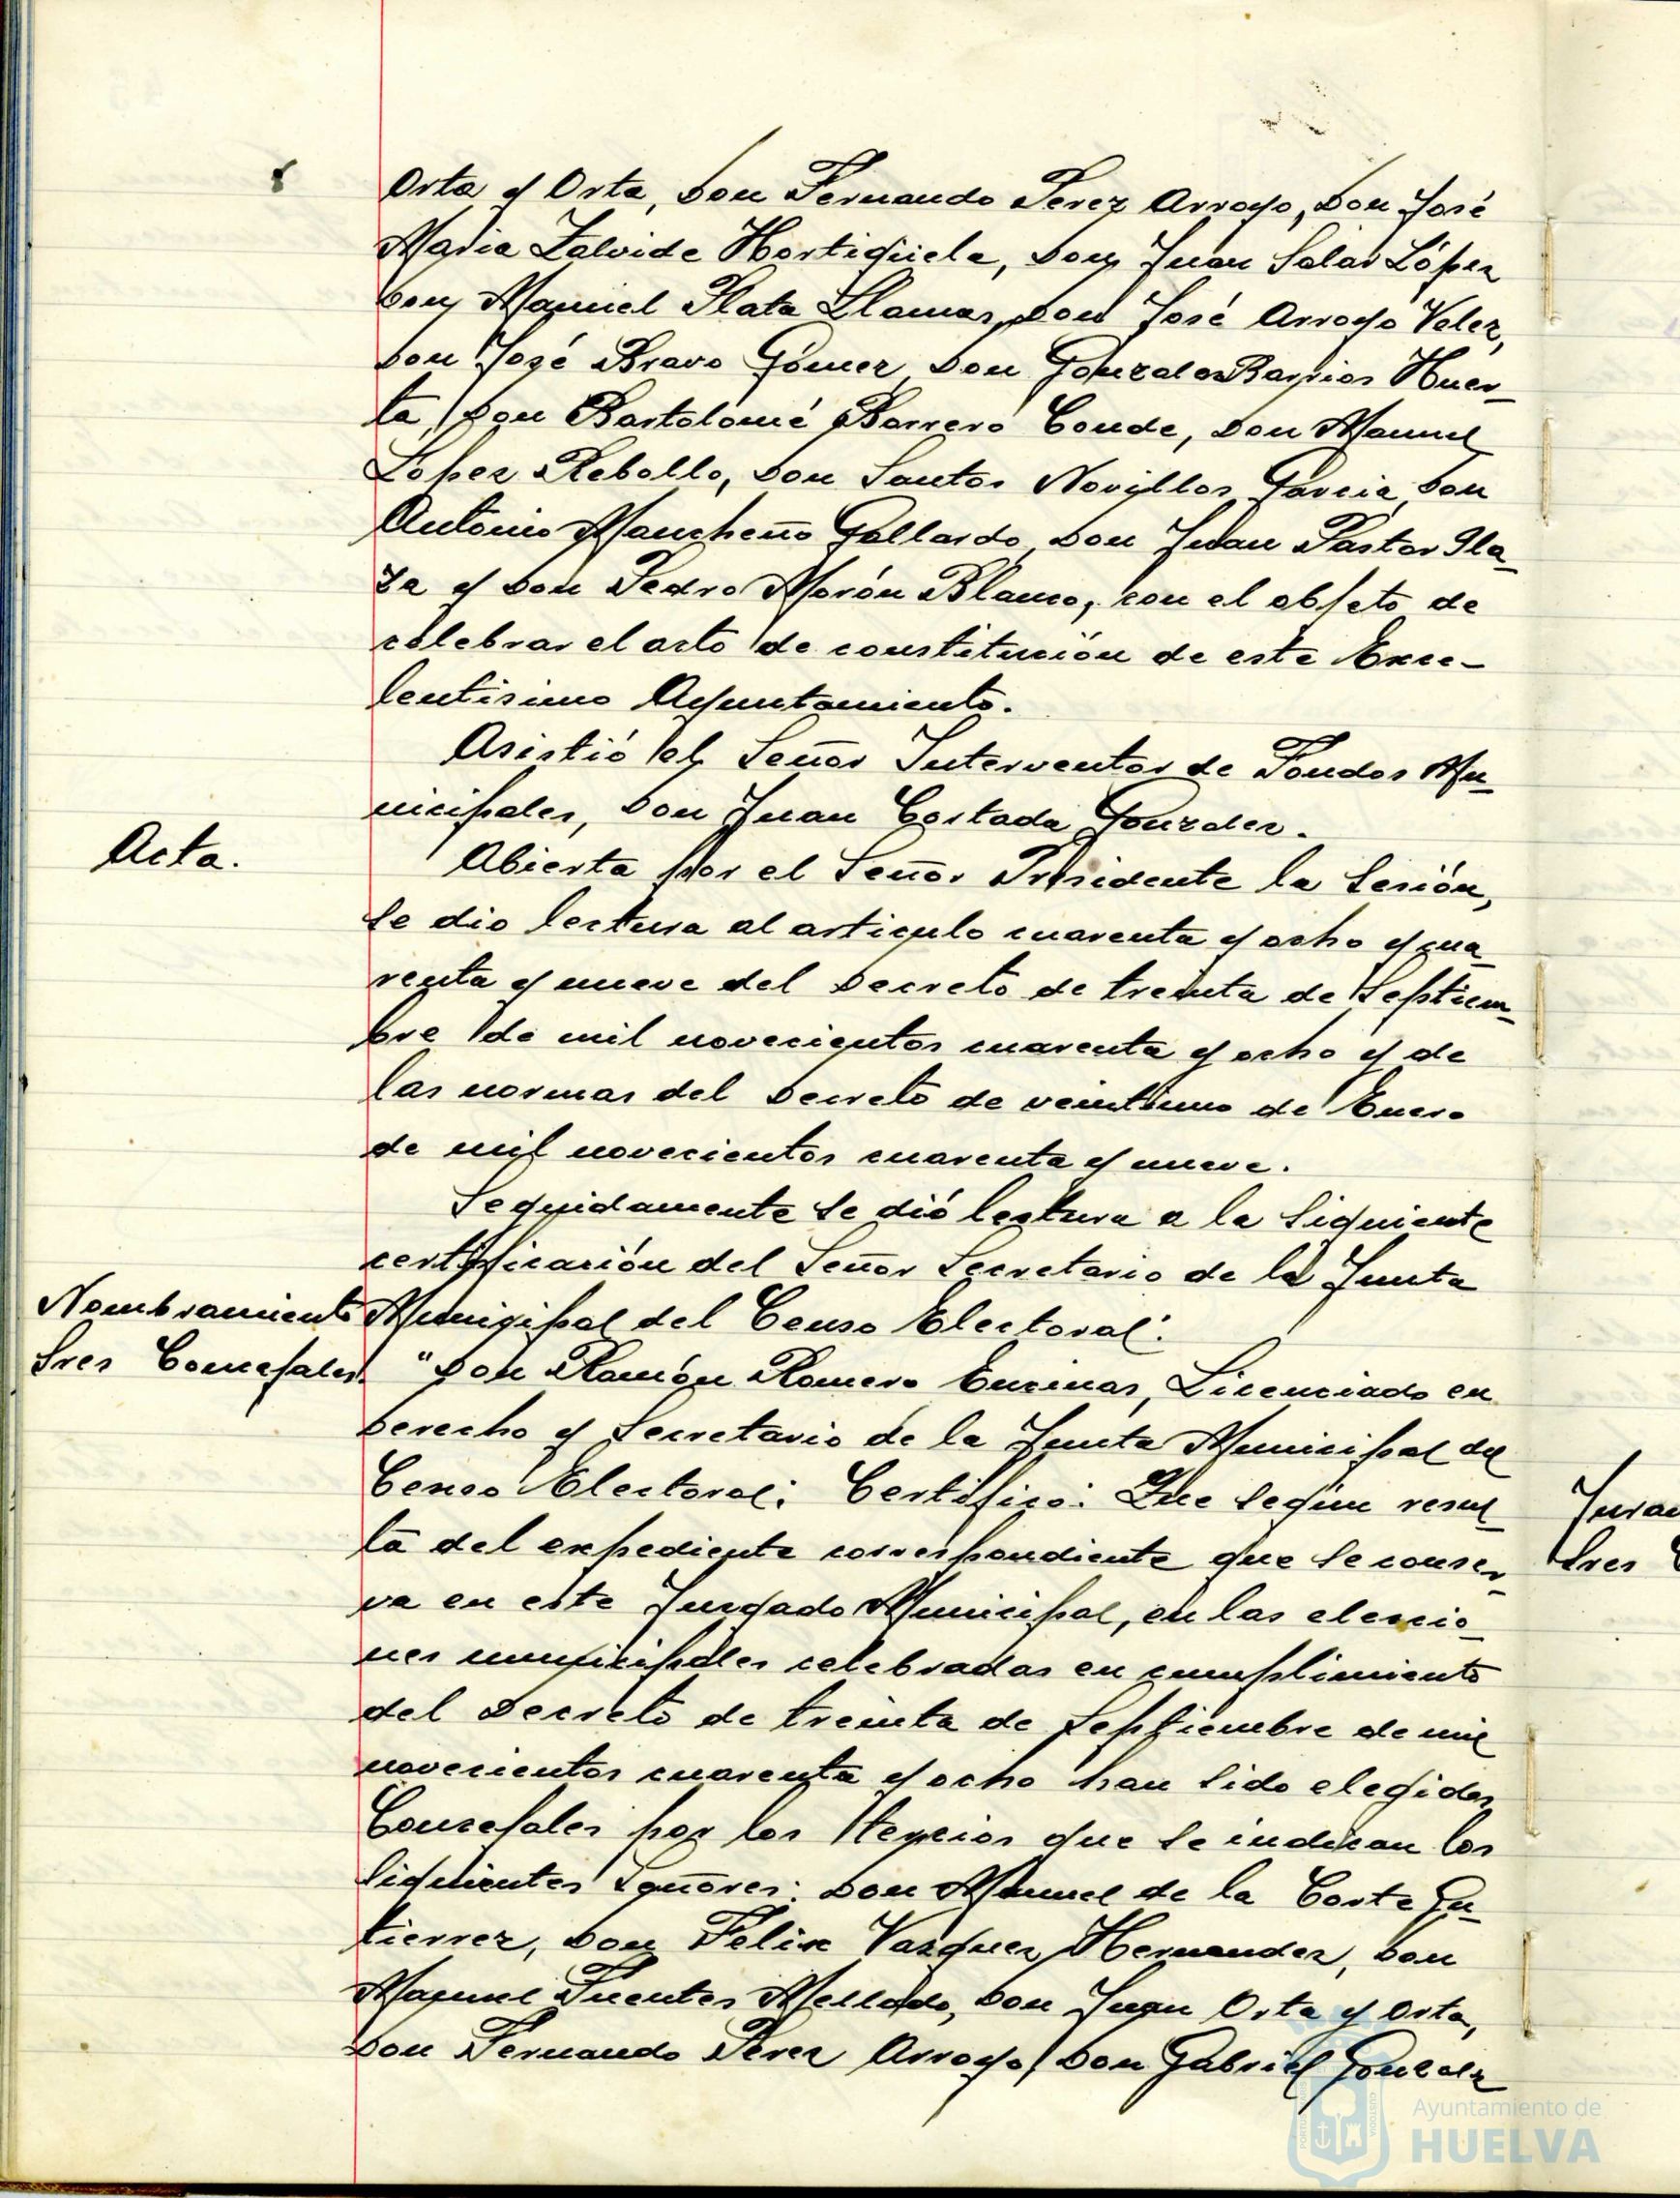 Orta y Orta, Don Fernando Perez Arroyo, Don José
Maria Zalvide Hortigüela, Don Juan Salas López
Don Manuel Plata Llamas, Don José Arroyo Velez,
Don José Bravo Gómez, Don Gonzalo Barrios Huer-
ta, Don Bartolomé Borrero Conde, Don Manuel
Lopez Rebollo, Don Santos Novillos Garcia, Don
Antonio Mancheño Gallardo, Don Juan Pastor Pla-
za y Don Pedro Morón Blanco, con el objeto de
celebrar el acto de constitución de este Exce-
lentisimo Ayuntamiento.
Asistió el Señor Interventor de Fondos Mu-
nicipales, Don Juan Costada Gonzalez.
Acta.
Abierta por el Señor Presidente la Sesión,
se dio lectura al articulo cuarenta y ocho y cua-
renta y nueve del Decreto de treinta de Septiem-
bre de mil novecientos cuarenta y ocho y de
las normas del Decreto de veintiuno de Enero
de mil novecientos cuarenta y nueve.
Seguidamente se dió lectura a la siguiente
certificación del Señor Secretario de la Junta
Nombramiento
Municipal del Censo Electoral:
Sres Concejales
"Don Ramón Romero Encinas, Licenciado en
Derecho y Secretario de la Junta Municipal del
Censo Electoral: Certifico: Que según resul-
ta del expediente correspondiente que se conser-
va en este Juzgado Municipal, en las eleccio-
nes municipales celebradas en cumplimiento
del Decreto de treinta de Septiembre de mil
novecientos cuarenta y ocho han sido elegidos
Concejales por los Tercios que se indican los
siguientes Señores: Don Manuel de la Corte Gu-
tierrez, Don Felix Vazquez Hernandez, Don
Manuel Fuentes Mellado, Don Juan Orta y Orta,
Don Fernando Perez Arroyo, Don Gabriel Gonzalez
Sres
Ayuntamiento de
HUELVA